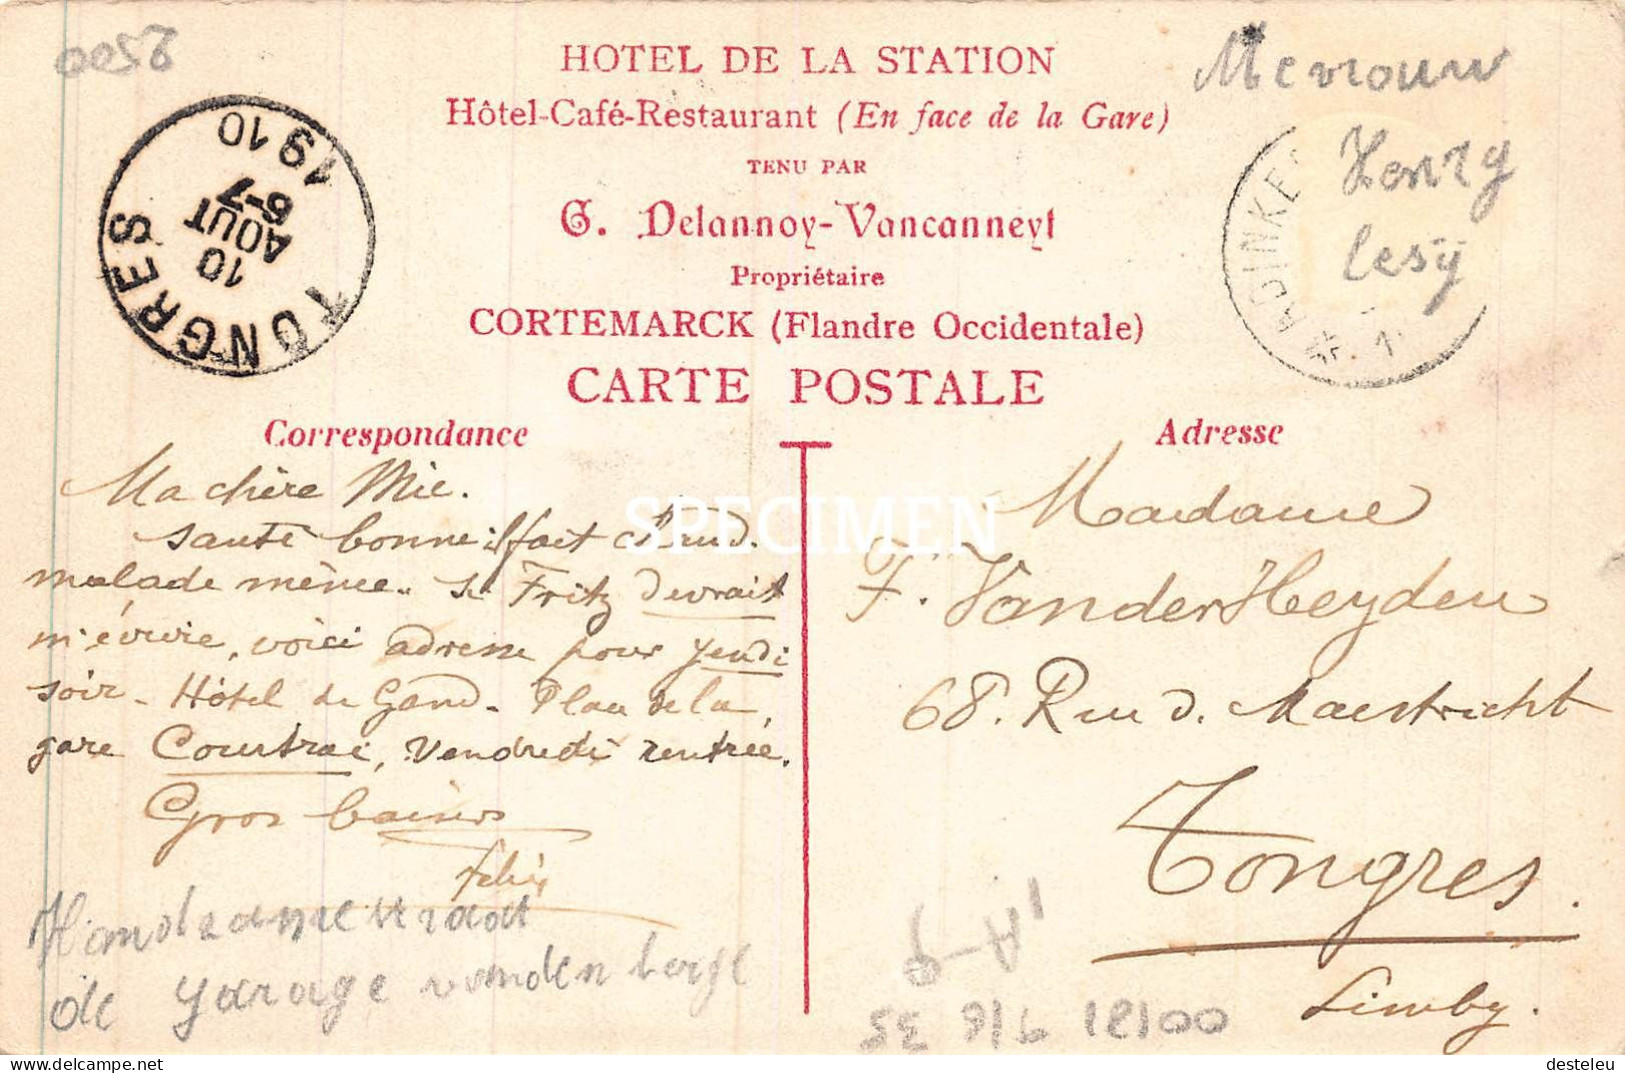 0056
HOTEL DE LA STATION
Hôtel-Café-Restaurant (En face de la Gare)
TENU PAR
G. Delannoy-Vancanneyt
Propriétaire
CORTEMARCK (Flandre Occidentale)
CARTE POSTALE
TONGRES
10
AOUT
6-7
1910
ADINKE
Mevrouw
Henry
lesÿ
Correspondance
Ma chère Mie.
santé bonne il fait chaud.
malade même. Si Fritz devrait
m'écrire, voici adresse pour jeudi
soir - Hôtel de Gand - Place de la
gare Courtrai, Vendredi rentrée.
Gros baisers
Félix
Adresse
Madame
F. VanderHeyden
68. Rue d. Maestricht
Tongres.
Limbg.
Handzamestraat
de garage vanden berge
SPECIMEN
delcampe.net
desteleu